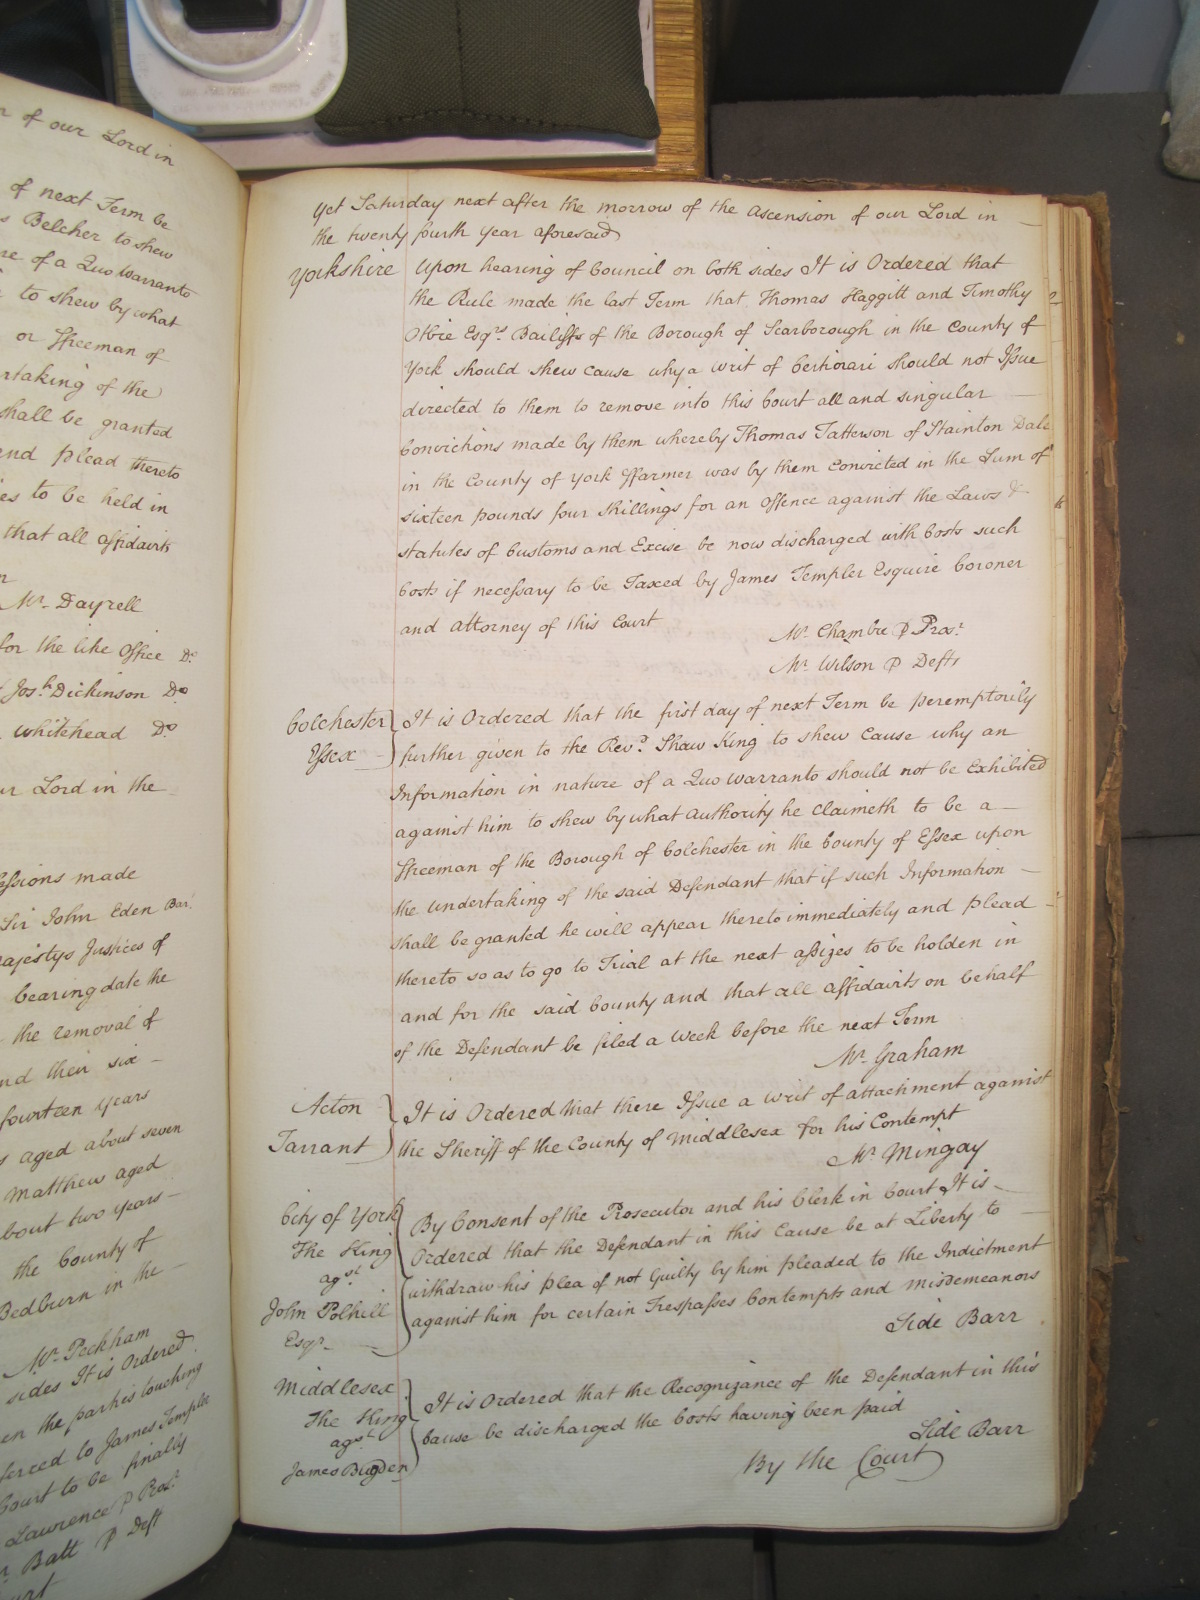 r of our Lord in
of next Term be
s Belcher to shew
re of a Quo Warranto
to shew by what
or Ffreeman of
rtaking of the
shall be granted
and plead thereto
es to be held in
that all affidavits
Mr. Dayrell
for the like Office Do
Josh. Dickinson Do
whitehead Do
ur Lord in the
essions made
Sir John Eden Bart.
ajestys Justices of
bearing date the
the removal of
nd their six
fourteen years
s aged about seven
Matthew aged
bout two years
the County of
Bedburn in the
Mr. Peckham
sides It is Ordered
en the parties touching
ferred to James Temple
Court to be finally
Lawrence P Pros.
Batt P Deft
urt
Yet Saturday next after the morrow of the Ascension of our Lord in
the twenty fourth year aforesaid
Yorkshire Upon hearing of Council on both sides It is Ordered that
the Rule made the last Term that Thomas Haggitt and Timothy
Otbie Esqrs. Bailiffs of the Borough of Scarborough in the County of
York should shew cause why a writ of Certiorari should not Issue
directed to them to remove into this Court all and singular
Convictions made by them whereby Thomas Tatterson of Stainton Dale
in the County of York Ffarmer was by them Convicted in the Sum of
sixteen pounds four shillings for an Offence against the Laws &
statutes of Customs and Excise be now discharged with Costs such
Costs if necessary to be Taxed by James Templer Esquire Coroner
and attorney of this Court
Mr. Chambre P Pros.
Mr. Wilson P Defts
Colchester } It is Ordered that the first day of next Term be peremptorily
Essex } further given to the Revd. Shaw King to shew Cause why an
Information in nature of a Quo Warranto should not be Exhibited
against him to shew by what Authority he Claimeth to be a
Ffreeman of the Borough of Colchester in the County of Essex upon
the undertaking of the said Defendant that if such Information
shall be granted he will appear thereto immediately and plead
thereto so as to go to Trial at the next assizes to be holden in
and for the said County and that all affidavits on behalf
of the Defendant be filed a week before the next Term
Mr. Graham
Acton } It is Ordered that there Issue a writ of attachment against
Tarrant } the Sheriff of the County of Middlesex for his Contempt
Mr. Mingay
City of York } By Consent of the Prosecutor and his Clerk in Court It is
The King } Ordered that the Defendant in this Cause be at Liberty to
agst. } withdraw his plea of not Guilty by him pleaded to the Indictment
John Polhill } against him for certain Trespasses Contempts and misdemeanors
Esqr. Side Barr
Middlesex } It is Ordered that the Recognizance of the Defendant in this
The King } Cause be discharged the Costs having been paid
agst. Side Barr
James Bugden By the Court